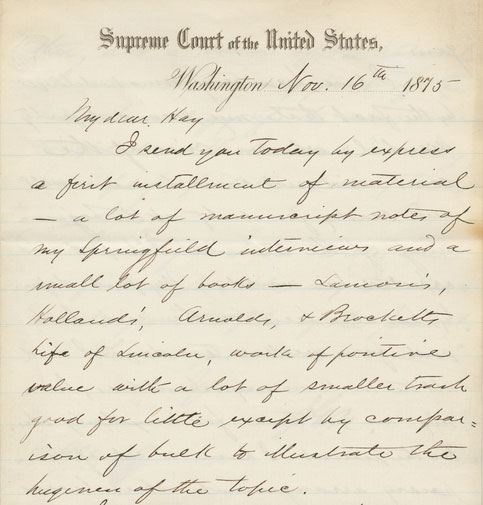 Supreme Court of the United States,
Washington Nov. 16th 1875
My dear Hay
I send you today by express
a first installment of material
— a lot of manuscript notes of
my Springfield interviews and a
small lot of books — Lamon's,
Holland's, Arnolds, & Brocketts
Life of Lincoln, works of positive
value with a lot of smaller trash
good for little except by compar=
ison of bulk to illustrate the
hugeness of the topic.